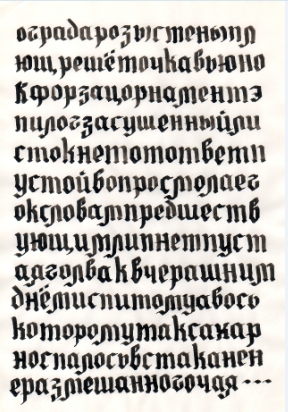 оградарозыстеныпл
ющрешёточкавьюно
кфорзацорнаментэ
пилогзасушенныйли
стокнетотответп
устойвопросмолаег
оксловампредшеств
ующимлипнетпуст
аяголваквчерашним
днёмиспитомуавось
которомутаксахар
носпалосьвстаканен
еразмешанногочая...